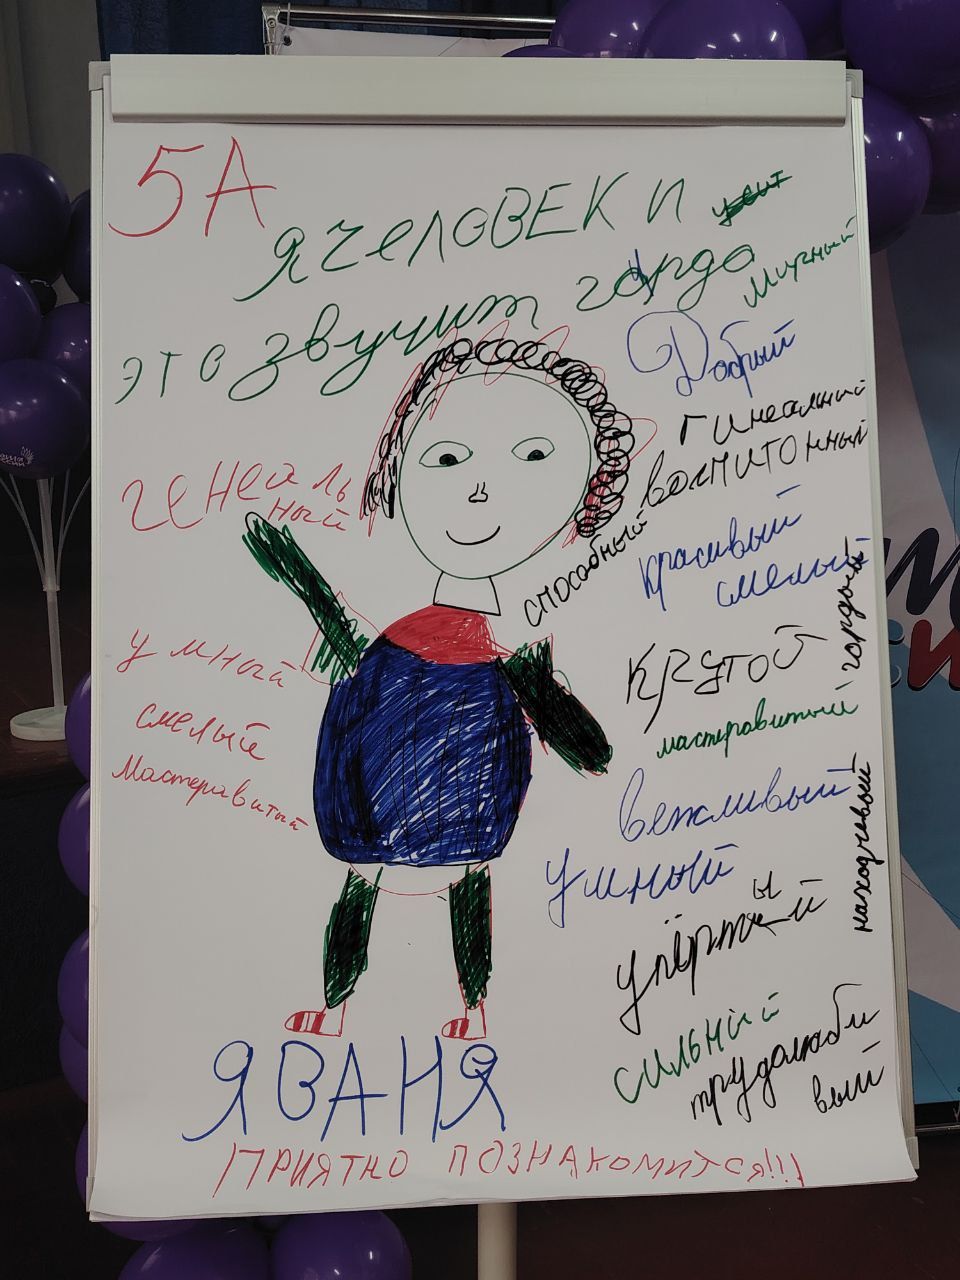 5А
Я ЧЕЛОВЕК И
это звучит гордо
мирный
Добрый
гинеальный
воспитонный
способный
красивый
смелый
гордый
КРУТОЙ
мастеравитый
вежливый
находчевый
умный
упёртый
сильный
трудалюби
вый
генеаль
ный
умный
смелый
Мастеравитый
Я ВАНЯ
ПРИЯТНО ПОЗНАКОМИТСЯ!!!